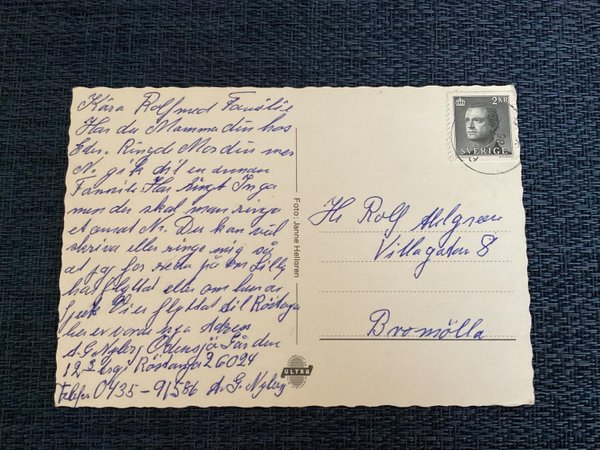 Kära Rolf med Familie
Har du Mamma din hos
Eder. Ringde Mor din men
Nr. gik til en annan
Familie Har Ringt Inga
men du skal man ringe
et ansat Nr. Du kan väl
skriva eller ringe mig så
at jag for reda på om Lilly
har flyttat eller om hun ar
sjuk Vi er flyttat til Röstånga
her er voran nya Adress
A.G. Nyberg Odensjö Gården
12 Röstånga 26024
Telefon 0435-91586 A.G. Nyberg
Foto: Janne Helloren
ULTRA
2 KR
SVERIGE
Hr Rolf Ahlgren
Villagatan 8
Bromölla